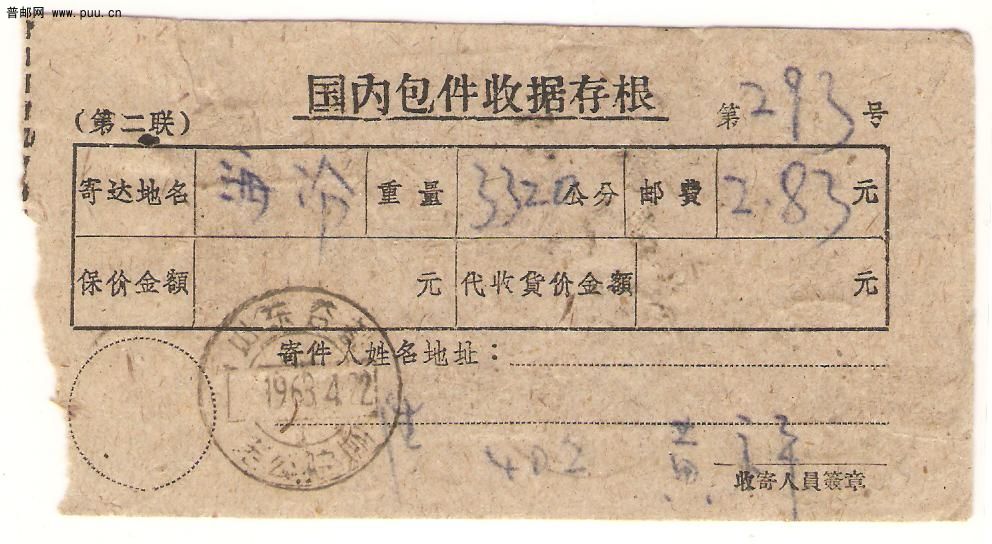 普邮网 www.puu.cn
国内包件收据存根
(第二联)
第293号
寄达地名 重量 3320公分 邮费 2.83元
保价金额 元 代收货价金额 元
山东
寄件人姓名地址：
1963.4.22
402
收寄人員簽章